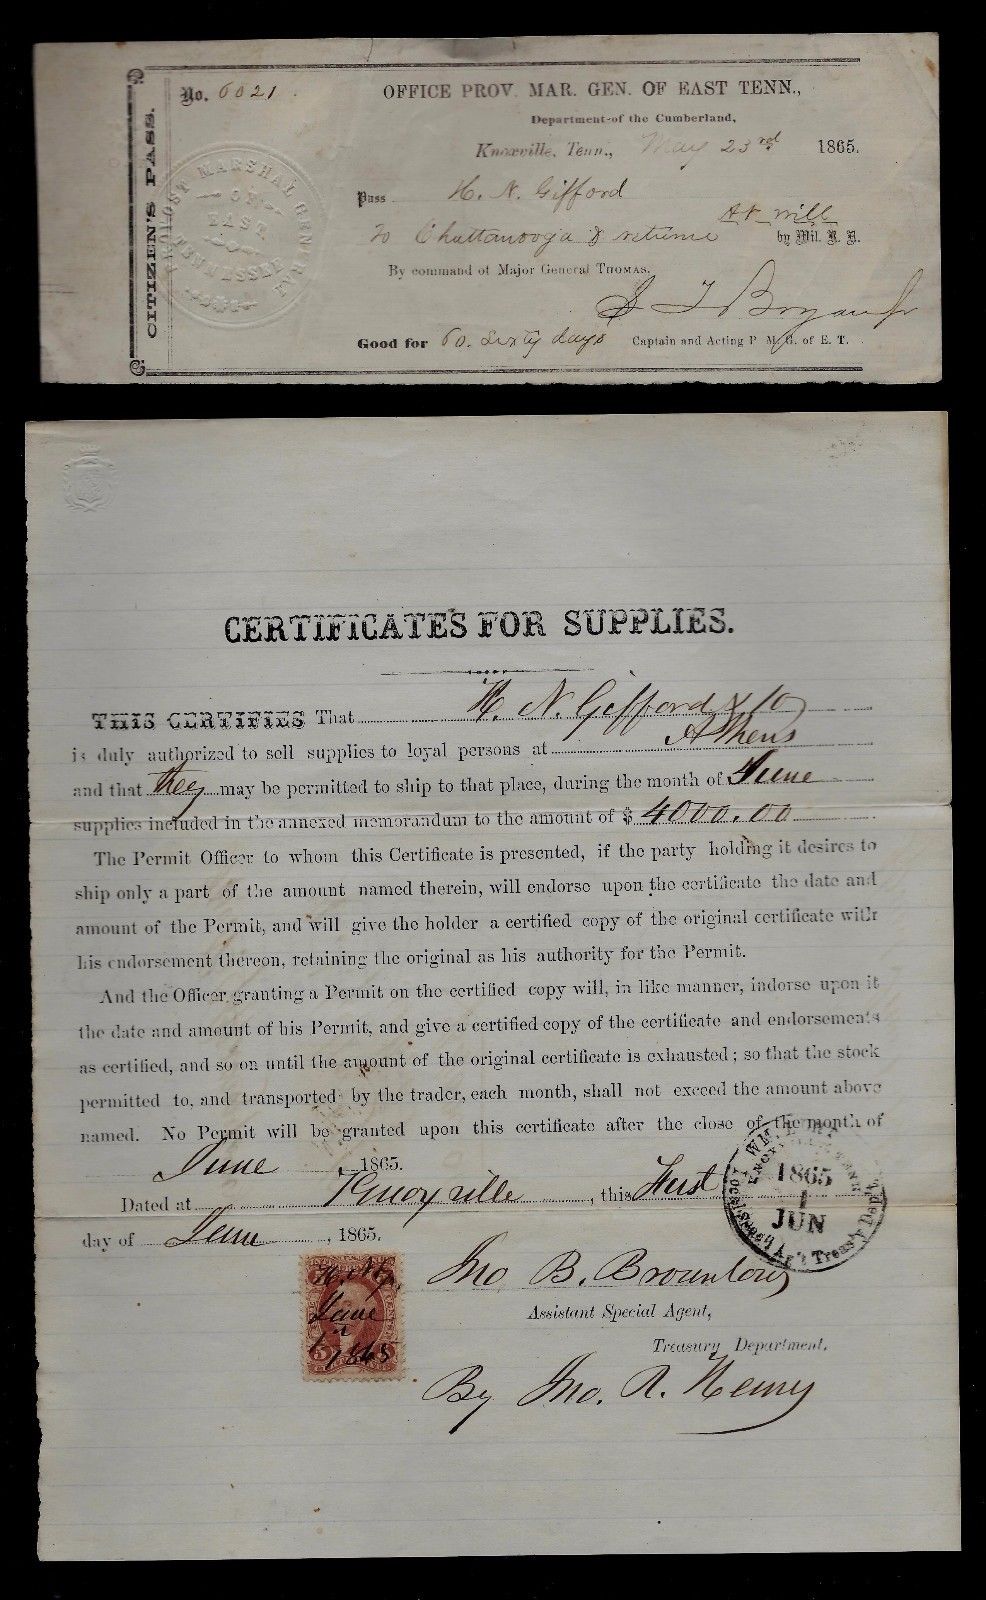 CITIZEN'S PASS.
No. 6021
OFFICE PROV. MAR. GEN. OF EAST TENN.,
Department of the Cumberland,
Knoxville, Tenn., May 23rd 1865.
PROVOST MARSHAL GENERAL
OF
EAST
TENNESSEE
Pass H. N. Gifford
At will
To Chattanooga & returne by Mil. R. R.
By command of Major General THOMAS.
S T Bryan Jr
Good for 60. Sixty days Captain and Acting P. M. G. of E. T.
CERTIFICATES FOR SUPPLIES.
THIS CERTIFIES That H. N. Gifford & Co
is duly authorized to sell supplies to loyal persons at Athens
and that they may be permitted to ship to that place, during the month of June
supplies included in the annexed memorandum to the amount of $ 4000.00
The Permit Officer to whom this Certificate is presented, if the party holding it desires to
ship only a part of the amount named therein, will endorse upon the certificate the date and
amount of the Permit, and will give the holder a certified copy of the original certificate with
his endorsement thereon, retaining the original as his authority for the Permit.
And the Officer granting a Permit on the certified copy will, in like manner, indorse upon it
the date and amount of his Permit, and give a certified copy of the certificate and endorsements
as certified, and so on until the amount of the original certificate is exhausted; so that the stock
permitted to, and transported by the trader, each month, shall not exceed the amount above
named. No Permit will be granted upon this certificate after the close of the month of
June, 1865.
Dated at Knoxville, this First
day of June, 1865.
1865
1
JUN
Treas'y Dep't.
Jno B. Brownlow
Assistant Special Agent,
Treasury Department.
By Jno. R. Henry
June
1865